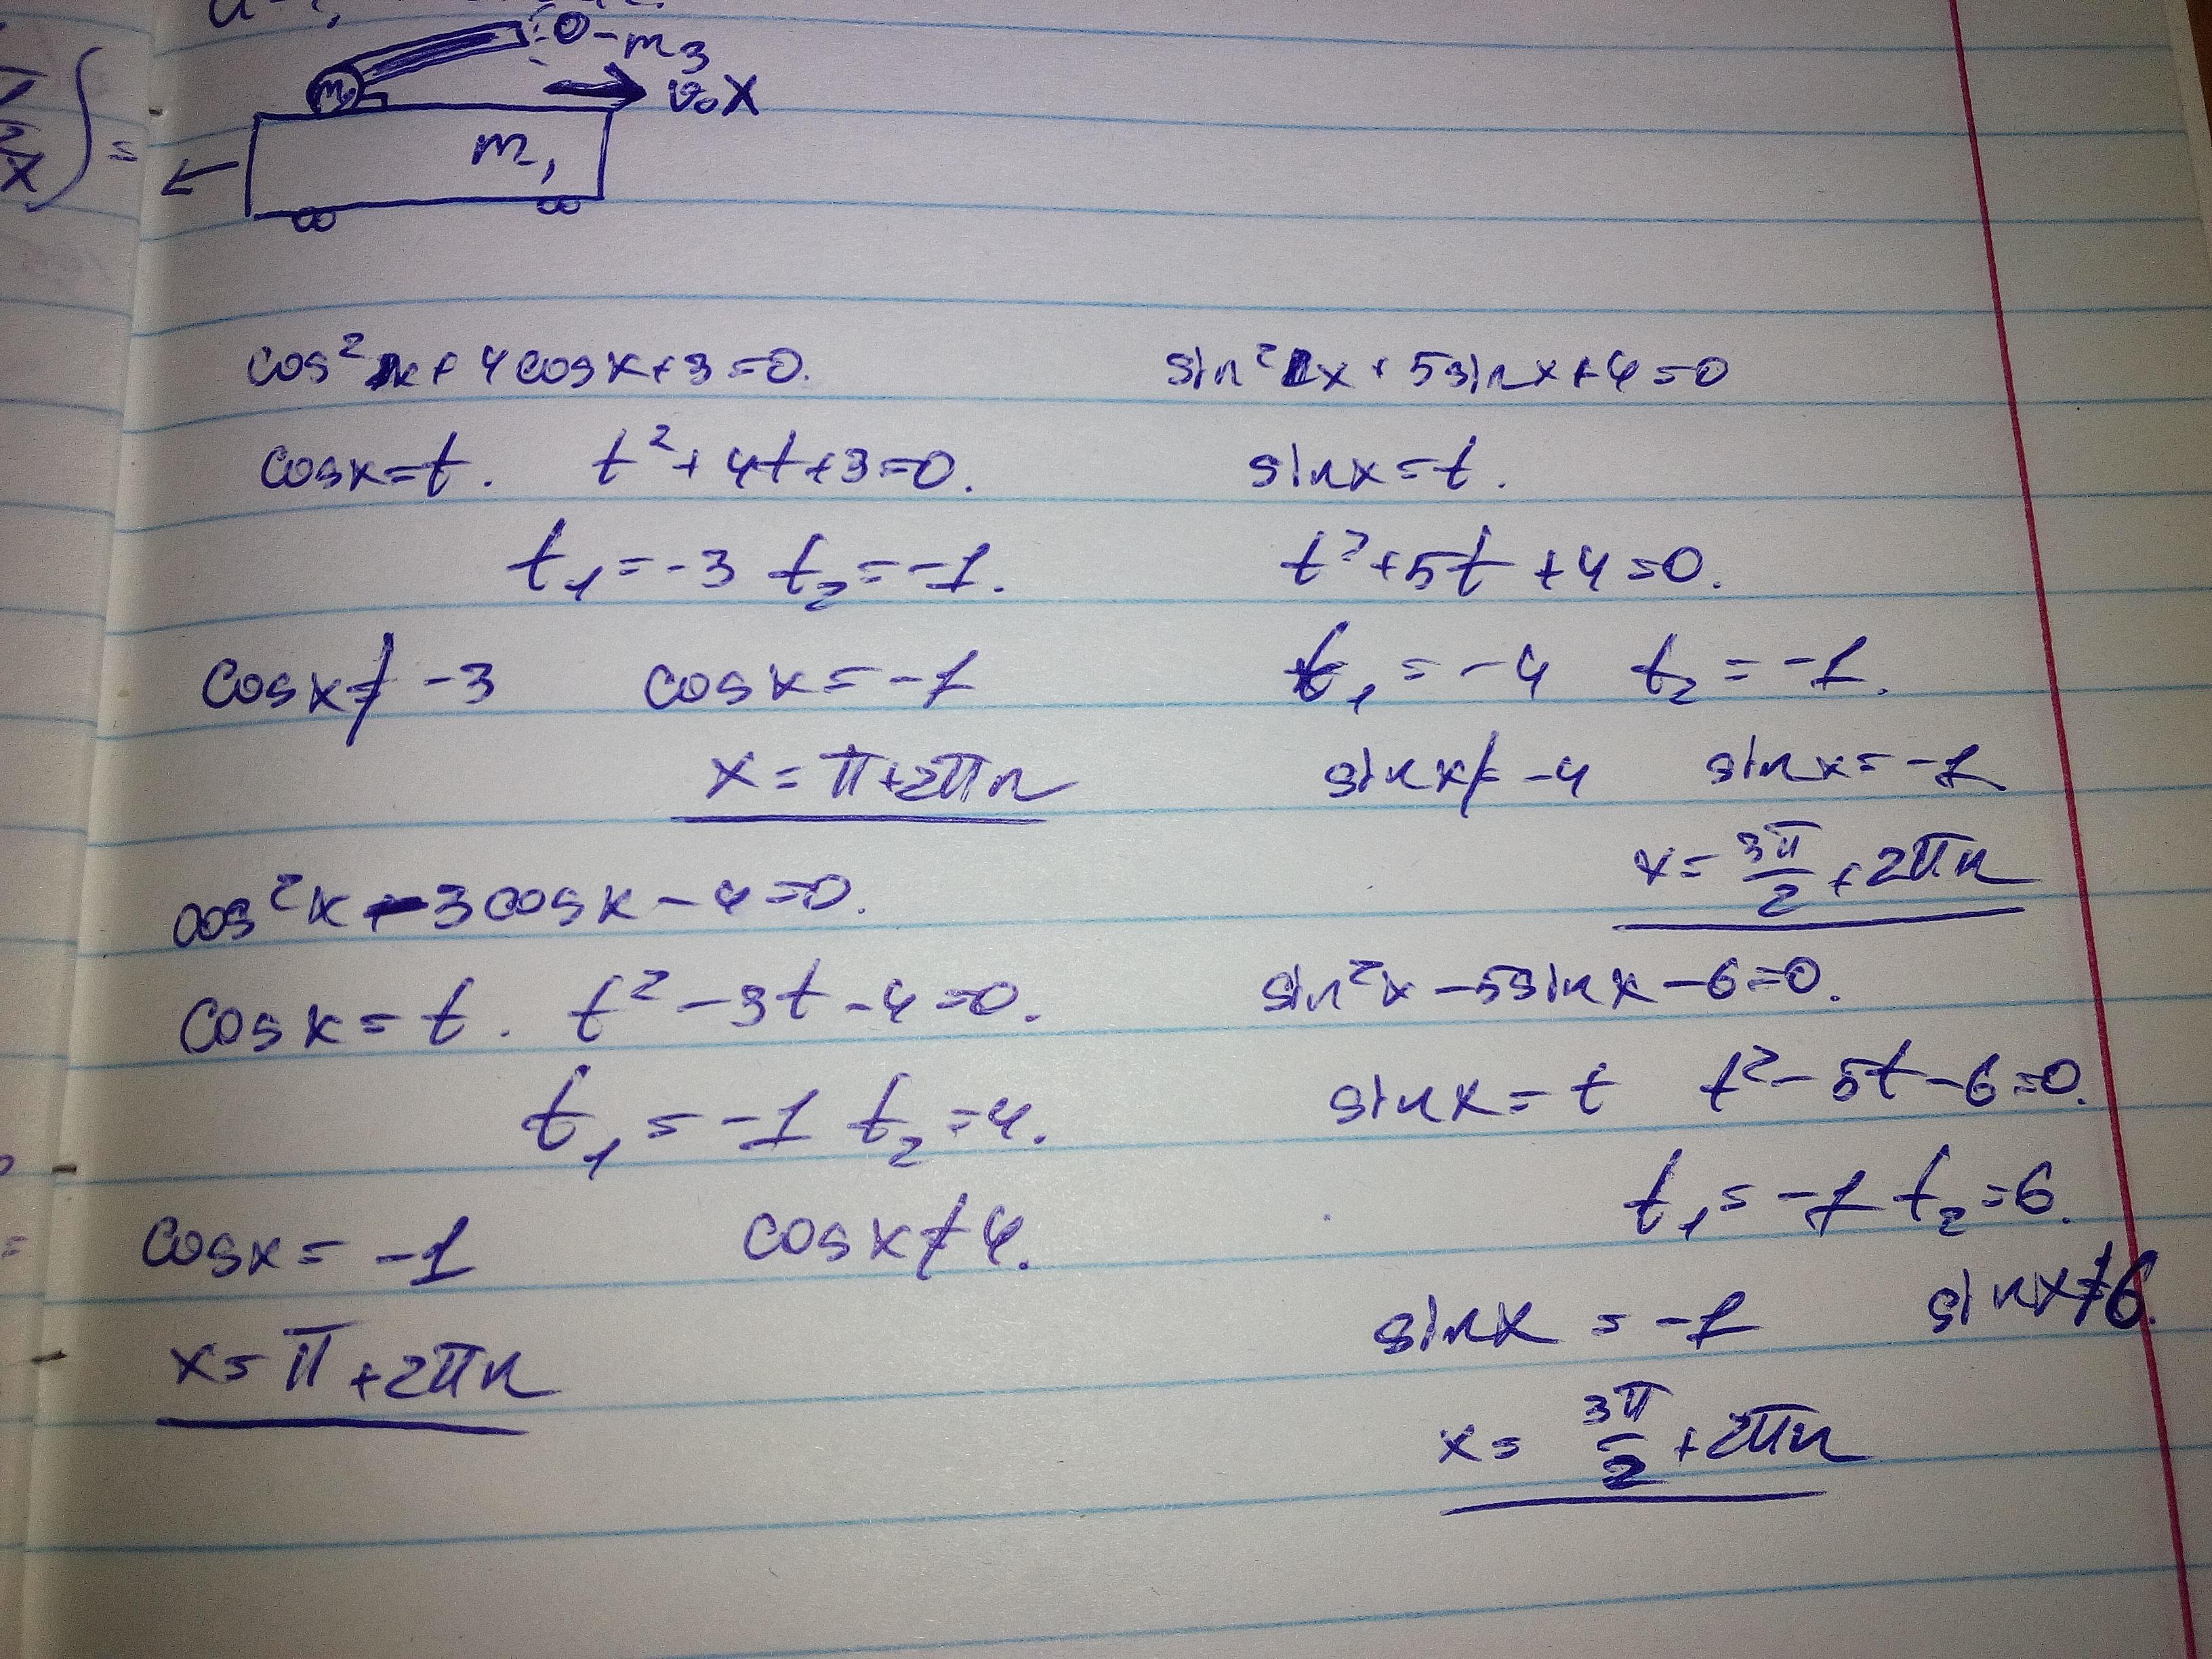 -m₃
v₀X
m₁
=
cos²x+4cosx+3=0.
cosx=t. t²+4t+3=0.
t₁=-3 t₂=-1.
cosx≠-3 cosx=-1
x=π+2πn
cos²x-3cosx-4=0.
cosx=t. t²-3t-4=0.
t₁=-1 t₂=4.
cosx=-1 cosx≠4.
x=π+2πn
sin²x+5sinx+4=0
sinx=t.
t²+5t+4=0.
t₁=-4 t₂=-1.
sinx≠-4 sinx=-1
x=3π/2+2πn
sin²x-5sinx-6=0.
sinx=t t²-5t-6=0.
t₁=-1 t₂=6.
sinx=-1 sinx≠6.
x=3π/2+2πn